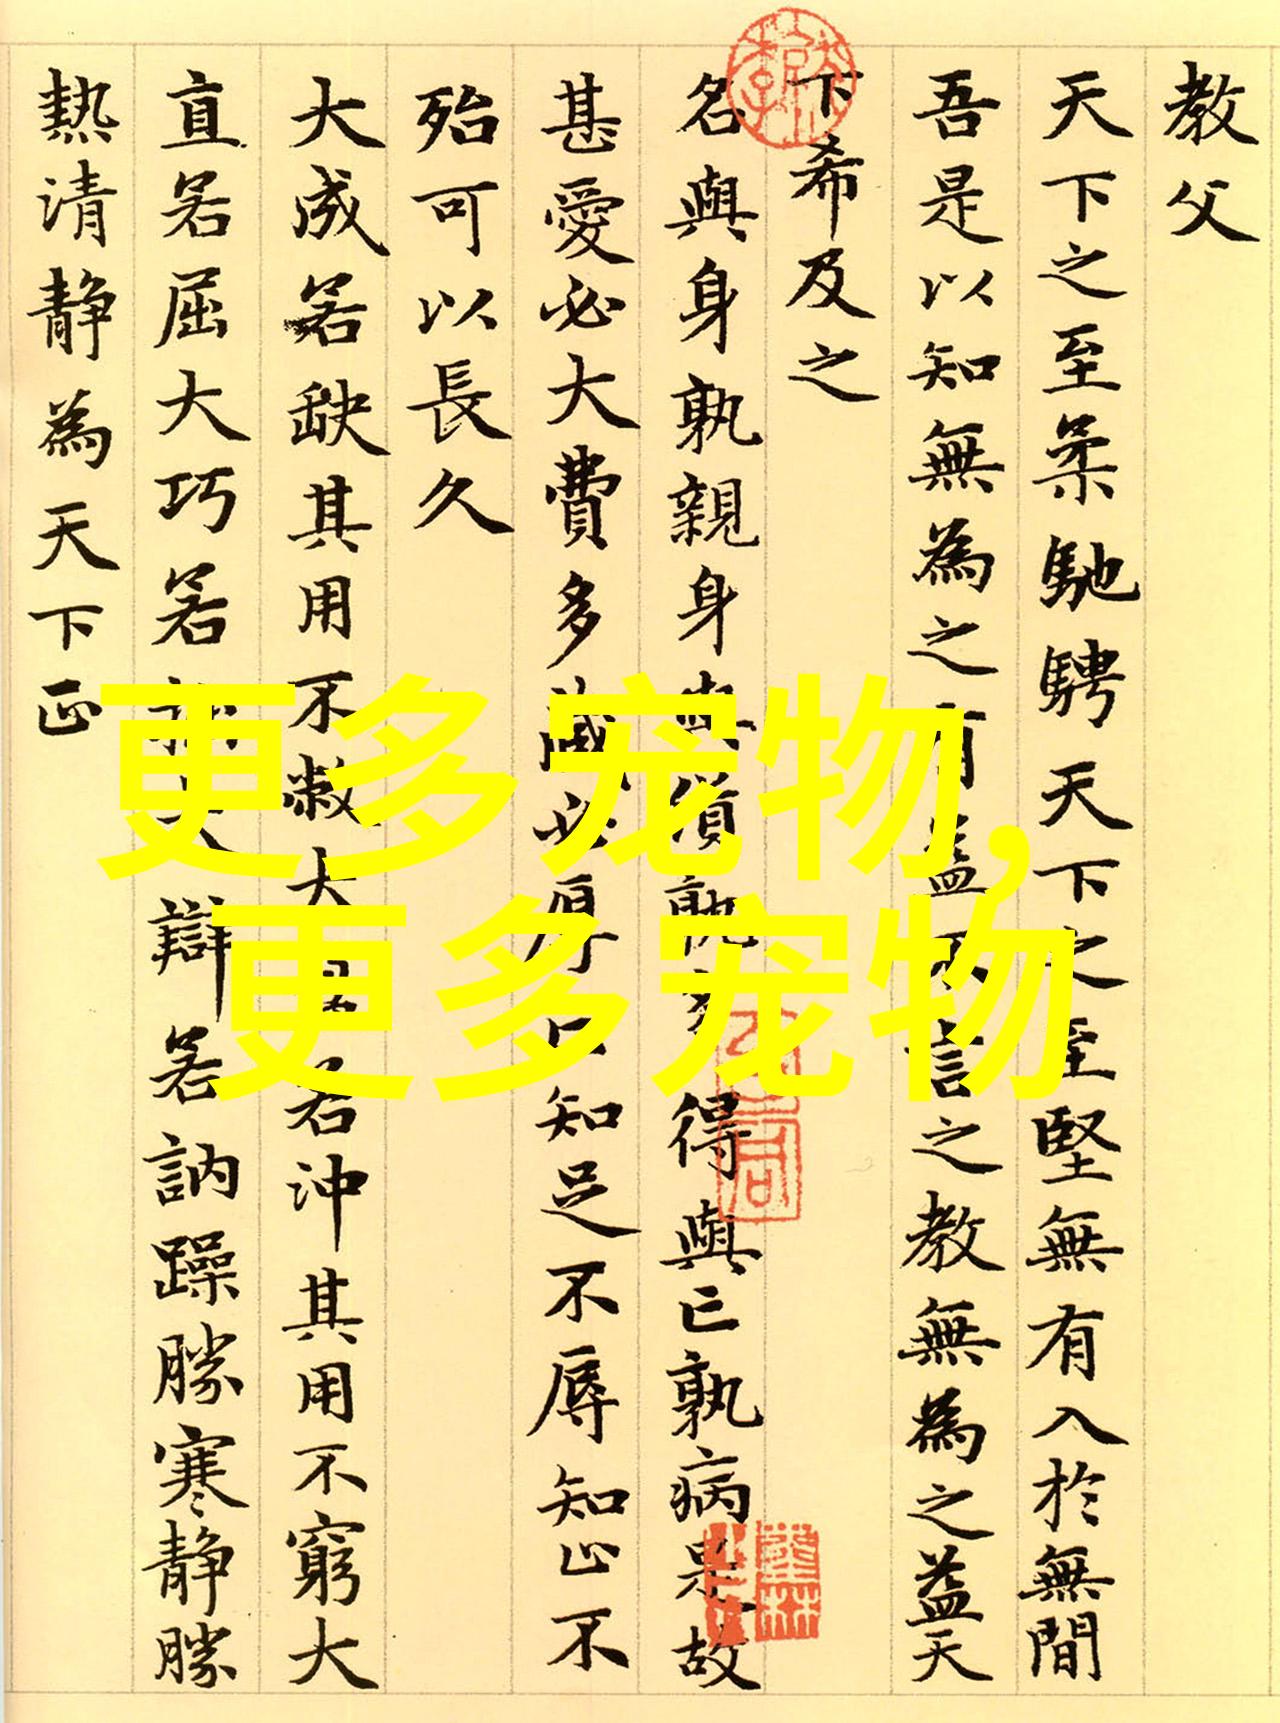 教父
天下之至柔馳騁天下之至堅無有入於無間
吾是以知無為之有益不言之教無為之益天
下希及之
名與身孰親身與貨孰多得與亡孰病是故
甚愛必大費多藏必厚亡知足不辱知止不
殆可以長久
大成若缺其用不敝大盈若沖其用不窮大
直若屈大巧若拙大辯若訥躁勝寒靜勝
熱清靜為天下正
更多宠物,
更多宠物